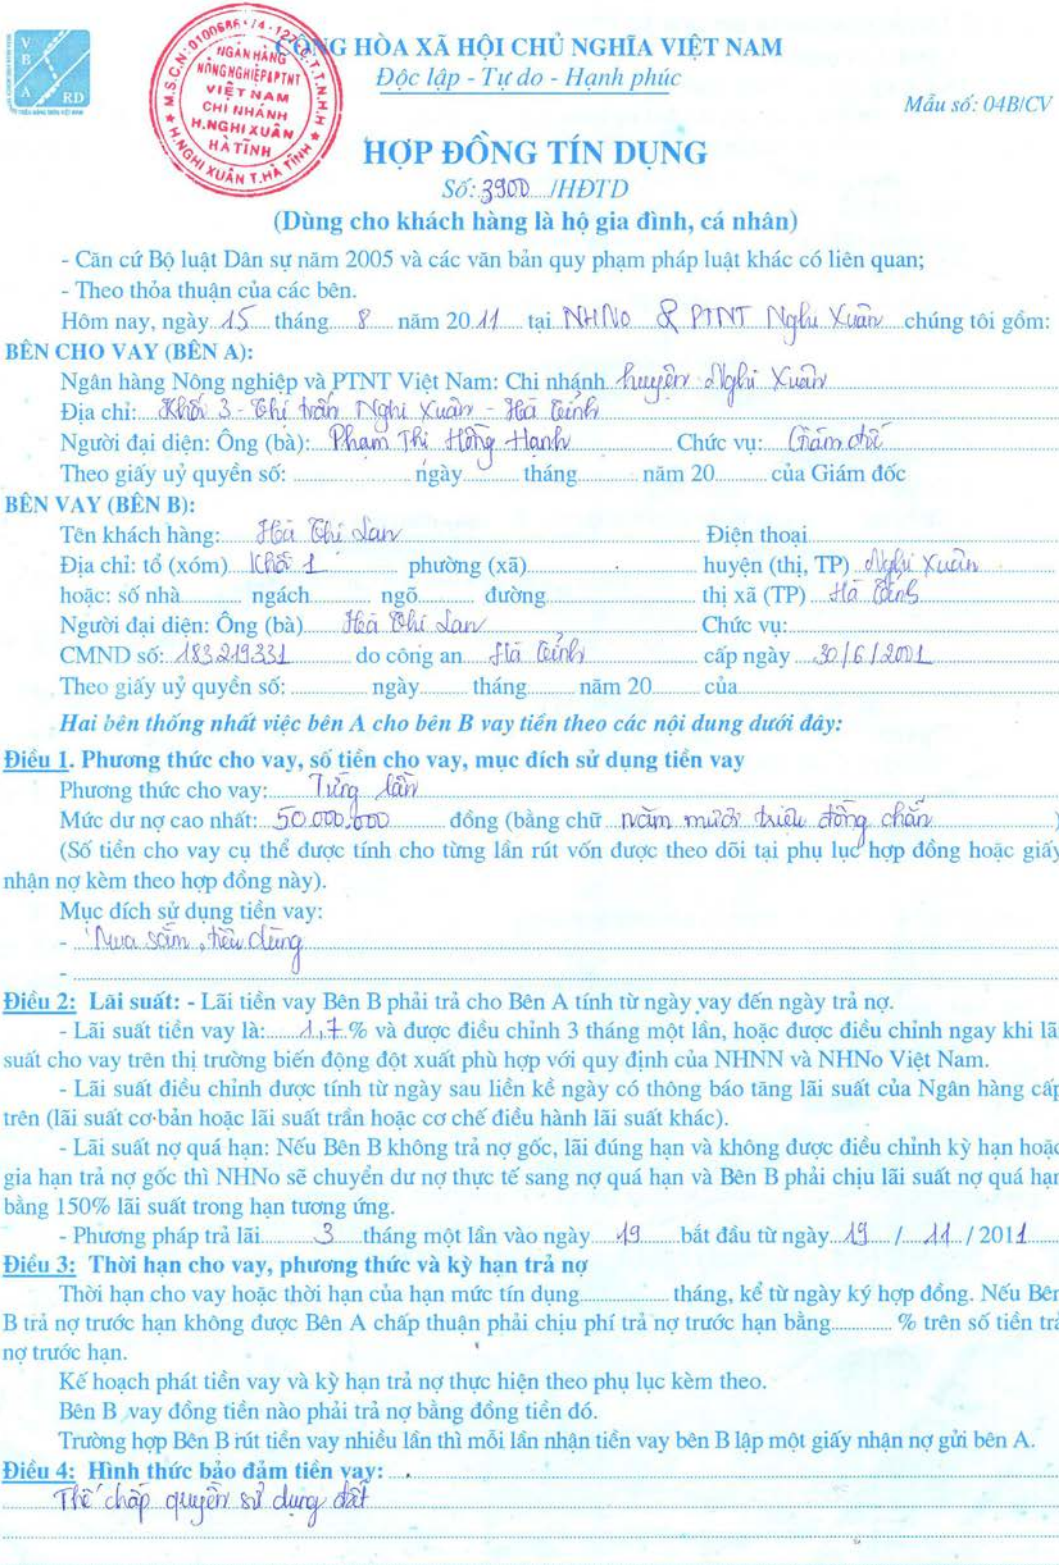 VBARD
M.S.C.N:0100686174-127.C.T.T.N.H.H
NGÂN HÀNG
NÔNG NGHIỆP & PTNT
VIỆT NAM
CHI NHÁNH
H.NGHI XUÂN
HÀ TĨNH
H.NGHI XUÂN T.HÀ TĨNH
CỘNG HÒA XÃ HỘI CHỦ NGHĨA VIỆT NAM
Độc lập - Tự do - Hạnh phúc
Mẫu số: 04B/CV
HỢP ĐỒNG TÍN DỤNG
Số: 3900 /HĐTD
(Dùng cho khách hàng là hộ gia đình, cá nhân)
- Căn cứ Bộ luật Dân sự năm 2005 và các văn bản quy phạm pháp luật khác có liên quan;
- Theo thỏa thuận của các bên.
Hôm nay, ngày 15 tháng 8 năm 2011 tại NHNo & PTNT Nghi Xuân chúng tôi gồm:
BÊN CHO VAY (BÊN A):
Ngân hàng Nông nghiệp và PTNT Việt Nam: Chi nhánh huyện Nghi Xuân
Địa chỉ: Khối 3 - Thị trấn Nghi Xuân - Hà Tĩnh
Người đại diện: Ông (bà): Phạm Thị Hồng Hạnh Chức vụ: Giám đốc
Theo giấy uỷ quyền số: ngày tháng năm 20 của Giám đốc
BÊN VAY (BÊN B):
Tên khách hàng: Hà Thị Lan Điện thoại
Địa chỉ: tổ (xóm) Khối 1 phường (xã) huyện (thị, TP) Nghi Xuân
hoặc: số nhà ngách ngõ đường thị xã (TP) Hà Tĩnh
Người đại diện: Ông (bà) Hà Thị Lan Chức vụ:
CMND số: 183219331 do công an Hà Tĩnh cấp ngày 30/6/2001
Theo giấy uỷ quyền số: ngày tháng năm 20 của
Hai bên thống nhất việc bên A cho bên B vay tiền theo các nội dung dưới đây:
Điều 1. Phương thức cho vay, số tiền cho vay, mục đích sử dụng tiền vay
Phương thức cho vay: Từng lần
Mức dư nợ cao nhất: 50.000.000 đồng (bằng chữ năm mươi triệu đồng chẵn )
(Số tiền cho vay cụ thể được tính cho từng lần rút vốn được theo dõi tại phụ lục hợp đồng hoặc giấy
nhận nợ kèm theo hợp đồng này).
Mục đích sử dụng tiền vay:
- Mua sắm, tiêu dùng
-
Điều 2: Lãi suất: - Lãi tiền vay Bên B phải trả cho Bên A tính từ ngày vay đến ngày trả nợ.
- Lãi suất tiền vay là: 1,7 % và được điều chỉnh 3 tháng một lần, hoặc được điều chỉnh ngay khi lã
suất cho vay trên thị trường biến động đột xuất phù hợp với quy định của NHNN và NHNo Việt Nam.
- Lãi suất điều chỉnh được tính từ ngày sau liền kề ngày có thông báo tăng lãi suất của Ngân hàng cấp
trên (lãi suất cơ bản hoặc lãi suất trần hoặc cơ chế điều hành lãi suất khác).
- Lãi suất nợ quá hạn: Nếu Bên B không trả nợ gốc, lãi đúng hạn và không được điều chỉnh kỳ hạn hoặc
gia hạn trả nợ gốc thì NHNo sẽ chuyển dư nợ thực tế sang nợ quá hạn và Bên B phải chịu lãi suất nợ quá hạn
bằng 150% lãi suất trong hạn tương ứng.
- Phương pháp trả lãi 3 tháng một lần vào ngày 19 bắt đầu từ ngày 19 / 11 / 2011
Điều 3: Thời hạn cho vay, phương thức và kỳ hạn trả nợ
Thời hạn cho vay hoặc thời hạn của hạn mức tín dụng tháng, kể từ ngày ký hợp đồng. Nếu Bên
B trả nợ trước hạn không được Bên A chấp thuận phải chịu phí trả nợ trước hạn bằng % trên số tiền trả
nợ trước hạn.
Kế hoạch phát tiền vay và kỳ hạn trả nợ thực hiện theo phụ lục kèm theo.
Bên B vay đồng tiền nào phải trả nợ bằng đồng tiền đó.
Trường hợp Bên B rút tiền vay nhiều lần thì mỗi lần nhận tiền vay bên B lập một giấy nhận nợ gửi bên A.
Điều 4: Hình thức bảo đảm tiền vay:
Thế chấp quyền sử dụng đất